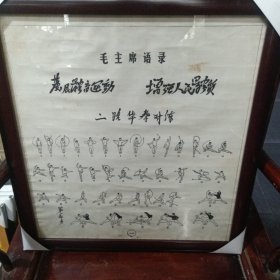 毛主席语录
发展体育运动 增强人民体质
二路华拳对练